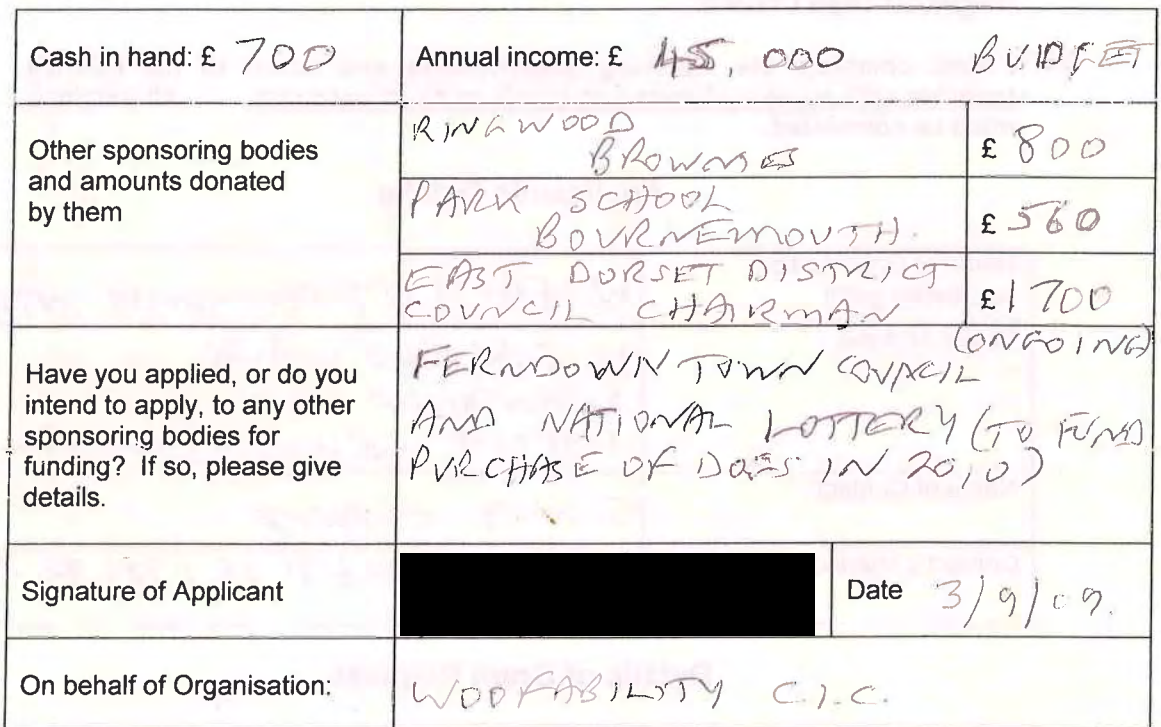 Cash in hand: £ 700
Annual income: £ 45,000 BUDGET
Other sponsoring bodies
and amounts donated
by them
RINGWOOD
BROWNIES
£ 800
PARK SCHOOL
BOURNEMOUTH.
£ 560
EAST DORSET DISTRICT
COUNCIL CHAIRMAN
£1700
(ONGOING)
Have you applied, or do you
intend to apply, to any other
sponsoring bodies for
funding? If so, please give
details.
FERNDOWN TOWN COUNCIL
AND NATIONAL LOTTERY (TO FUND
PURCHASE OF DOGS IN 2010)
Signature of Applicant
Date 3/9/09.
On behalf of Organisation:
WOOFABILITY C.I.C.